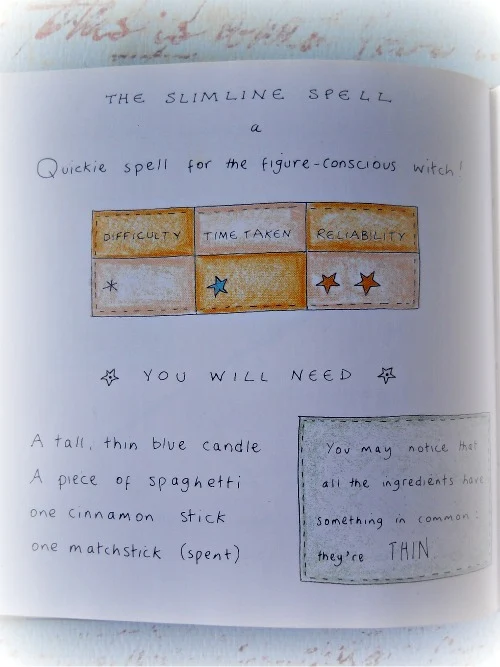 This is
THE SLIMLINE SPELL
a
Quickie spell for the figure-conscious witch!
DIFFICULTY TIME TAKEN RELIABILITY
YOU WILL NEED
A tall, thin blue candle
A piece of spaghetti
one cinnamon stick
one matchstick (spent)
You may notice that
all the ingredients have
something in common:
they're THIN